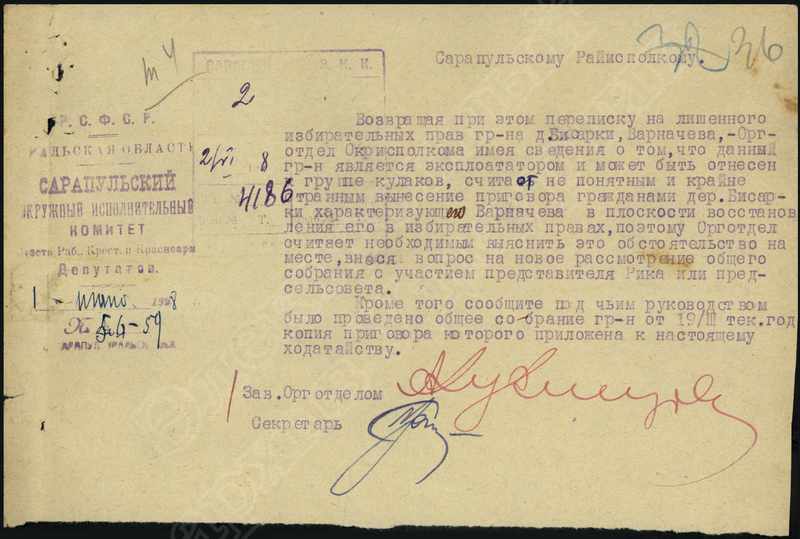 36
Сарапульскому Райисполкому.
2
2/VI 8
4186
Р. С. Ф. С. Р.
УРАЛЬСКАЯ ОБЛАСТЬ
САРАПУЛЬСКИЙ
ОКРУЖНЫЙ ИСПОЛНИТЕЛЬНЫЙ
КОМИТЕТ
Раб., Крест. и Красноарм
Депутатов.
1 - июня 1928
№ 56-59
Возвращая при этом переписку на лишенного
избирательных прав гр-на д.Бисарки,Варначева,-Орг-
отдел Окрисполкома имея сведения о том,что данный
гр-н является эксплоататором и может быть отнесен
к группе кулаков, считает не понятным и крайне
странным вынесение приговора гражданами дер.Бисар-
ки характеризующего Варначева в плоскости восстанов
ления его в избирательных правах,поэтому Орготдел
считает необходимым выяснить это обстоятельство на
месте,внеся вопрос на новое рассмотрение общего
собрания с участием представителя Рика или пред-
сельсовета.
Кроме того сообщите под чьим руководством
было проведено общее собрание гр-н от 19/III тек.год
копия приговора которого приложена к настоящему
ходатайству.
Зав.Орготделом
Секретарь